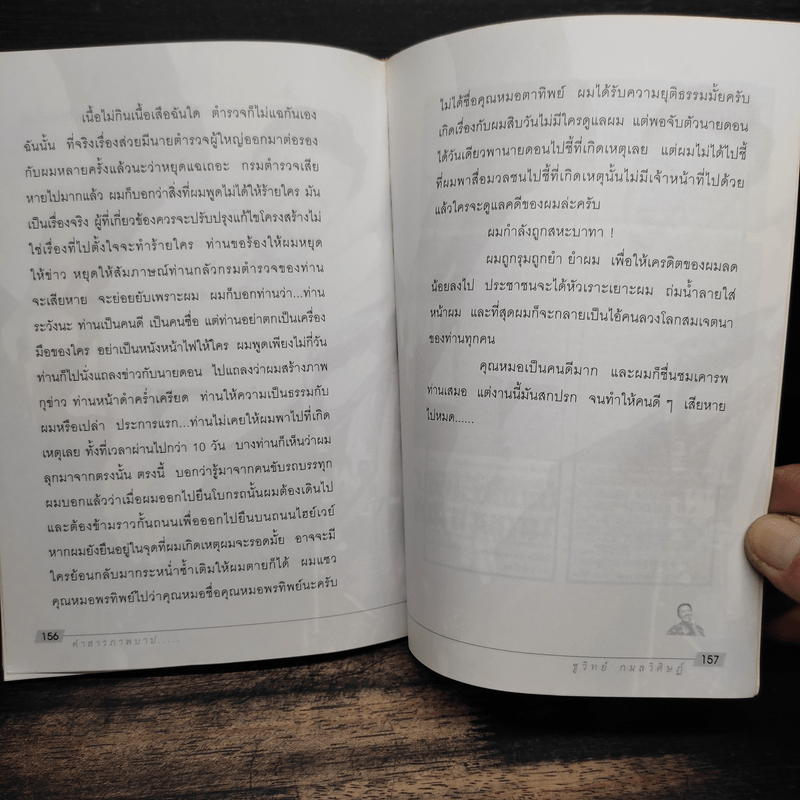 เนื้อไม่กินเนื้อเสือฉันใด ตำรวจก็ไม่แฉกันเอง
ฉันนั้น ที่จริงเรื่องส่วยมีนายตำรวจผู้ใหญ่ออกมาต่อรอง
กับผมหลายครั้งแล้วนะว่าหยุดแฉเถอะ กรมตำรวจเสีย
หายไปมากแล้ว ผมก็บอกว่าสิ่งที่ผมพูดไม่ได้ให้ร้ายใคร มัน
เป็นเรื่องจริง ผู้ที่เกี่ยวข้องควรจะปรับปรุงแก้ไขโครงสร้างไม่
ใช่เรื่องที่ไปตั้งใจจะทำร้ายใคร ท่านขอร้องให้ผมหยุด
ให้ข่าว หยุดให้สัมภาษณ์ท่านกลัวกรมตำรวจของท่าน
จะเสียหาย จะย่อยยับเพราะผม ผมก็บอกท่านว่า...ท่าน
ระวังนะ ท่านเป็นคนดี เป็นคนซื่อ แต่ท่านอย่าตกเป็นเครื่อง
มือของใคร อย่าเป็นหนังหน้าไฟให้ใคร ผมพูดเพียงไม่กี่วัน
ท่านก็ไปนั่งแถลงข่าวกับนายดอน ไปแถลงว่าผมสร้างภาพ
กุข่าว ท่านหน้าดำคร่ำเครียด ท่านให้ความเป็นธรรมกับ
ผมหรือเปล่า ประการแรก...ท่านไม่เคยให้ผมพาไปที่เกิด
เหตุเลย ทั้งที่เวลาผ่านไปกว่า 10 วัน บางท่านก็เห็นว่าผม
ลุกมาจากตรงนั้น ตรงนี้ บอกว่ารู้มาจากคนขับรถบรรทุก
ผมบอกแล้วว่าเมื่อผมออกไปยืนโบกรถนั้นผมต้องเดินไป
และต้องข้ามราวกั้นถนนเพื่อออกไปยืนบนถนนไฮย์เวย์
หากผมยังยืนอยู่ในจุดที่ผมเกิดเหตุผมจะรอดมั้ย อาจจะมี
ใครย้อนกลับมากระหน่ำซ้ำเติมให้ผมตายก็ได้ ผมแซว
คุณหมอพรทิพย์ไปว่าคุณหมอชื่อคุณหมอพรทิพย์นะครับ
156
คำสารภาพบาป.....
ไม่ได้ชื่อคุณหมอตาทิพย์ ผมได้รับความยุติธรรมมั้ยครับ
เกิดเรื่องกับผมสิบวันไม่มีใครดูแลผม แต่พอจับตัวนายดอน
ได้วันเดียวพานายดอนไปชี้ที่เกิดเหตุเลย แต่ผมไม่ได้ไปชี้
ที่ผมพาสื่อมวลชนไปชี้ที่เกิดเหตุนั้นไม่มีเจ้าหน้าที่ไปด้วย
แล้วใครจะดูแลคดีของผมล่ะครับ
ผมกำลังถูกสหะบาทา !
ผมถูกรุมถูกยำ ยำผม เพื่อให้เครดิตของผมลด
น้อยลงไป ประชาชนจะได้หัวเราะเยาะผม ถ่มน้ำลายใส่
หน้าผม และที่สุดผมก็จะกลายเป็นไอ้คนลวงโลกสมเจตนา
ของท่านทุกคน
คุณหมอเป็นคนดีมาก และผมก็ชื่นชมเคารพ
ท่านเสมอ แต่งานนี้มันสกปรก จนทำให้คนดี ๆ เสียหาย
ไปหมด......
157
ชูวิทย์ กมลวิศิษฎ์